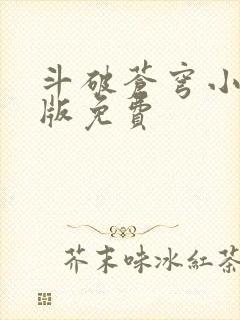 斗破蒼穹小
版免費
芥末味冰紅茶